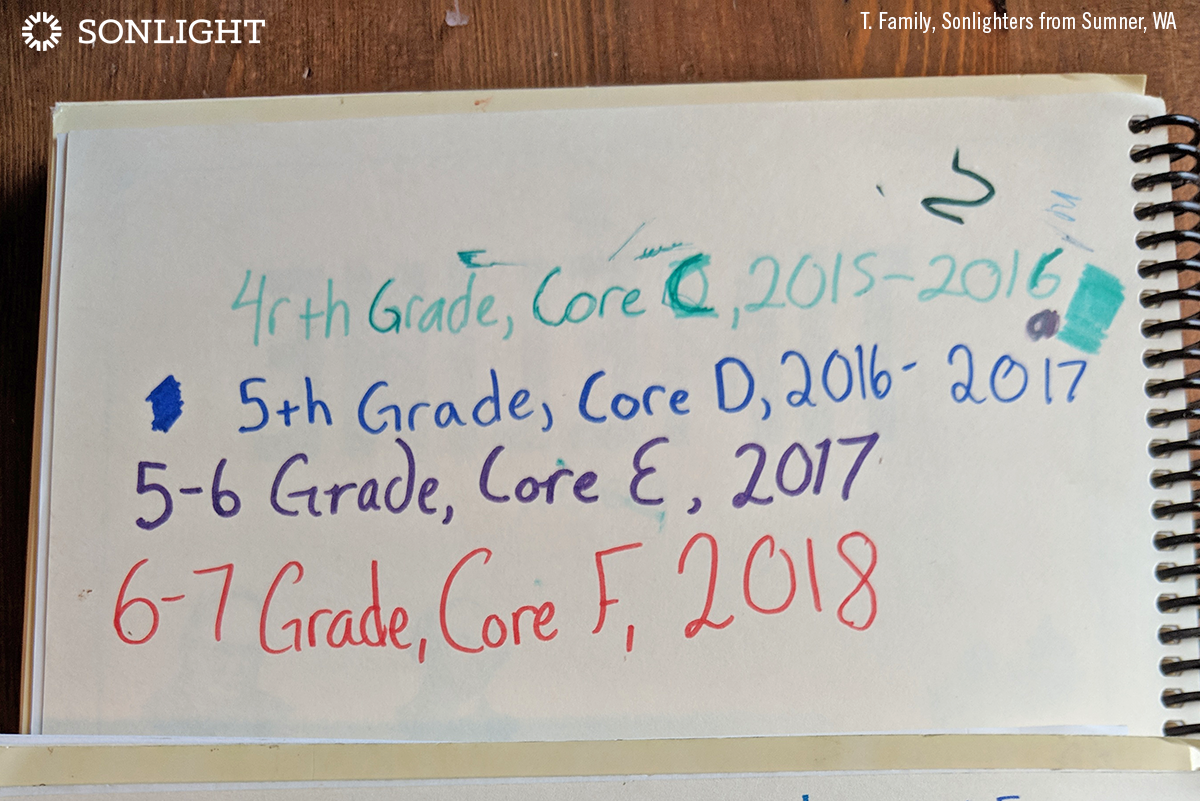 SONLIGHT
T. Family, Sonlighters from Sumner, WA
4rth Grade, Core C, 2015-2016
5th Grade, Core D, 2016- 2017
5-6 Grade, Core E, 2017
6-7 Grade, Core F, 2018